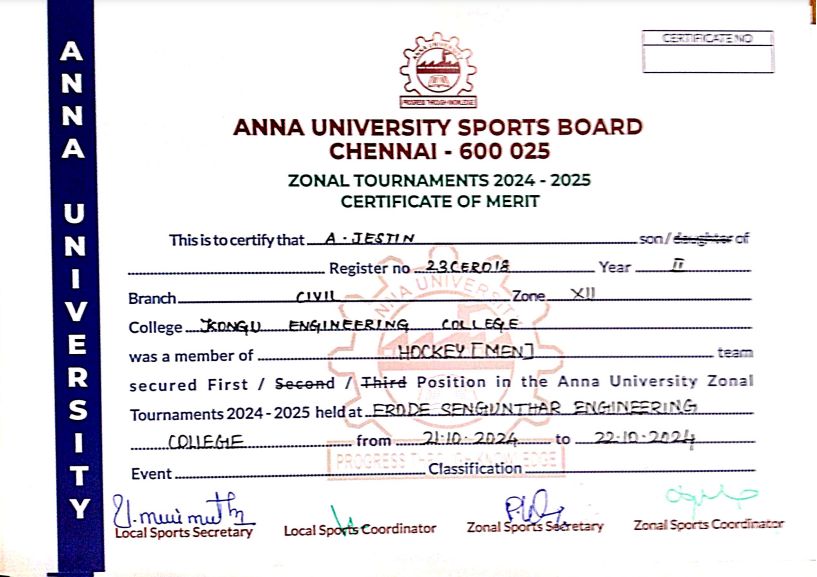 ANNA UNIVERSITY
CERTIFICATE NO
ANNA UNIVERSITY
PROGRESS THROUGH KNOWLEDGE
ANNA UNIVERSITY SPORTS BOARD
CHENNAI - 600 025
ZONAL TOURNAMENTS 2024 - 2025
CERTIFICATE OF MERIT
This is to certify that A. JESTIN son / daughter of
Register no 23CER018 Year II
Branch CIVIL Zone XII
College KONGU ENGINEERING COLLEGE
was a member of HOCKEY [MEN] team
secured First / Second / Third Position in the Anna University Zonal
Tournaments 2024 - 2025 held at ERODE SENGUNTHAR ENGINEERING
COLLEGE from 21.10.2024 to 22.10.2024
ANNA UNIVERSITY
PROGRESS THROUGH KNOWLEDGE
Event Classification
Local Sports Secretary Local Sports Coordinator Zonal Sports Secretary Zonal Sports Coordinator